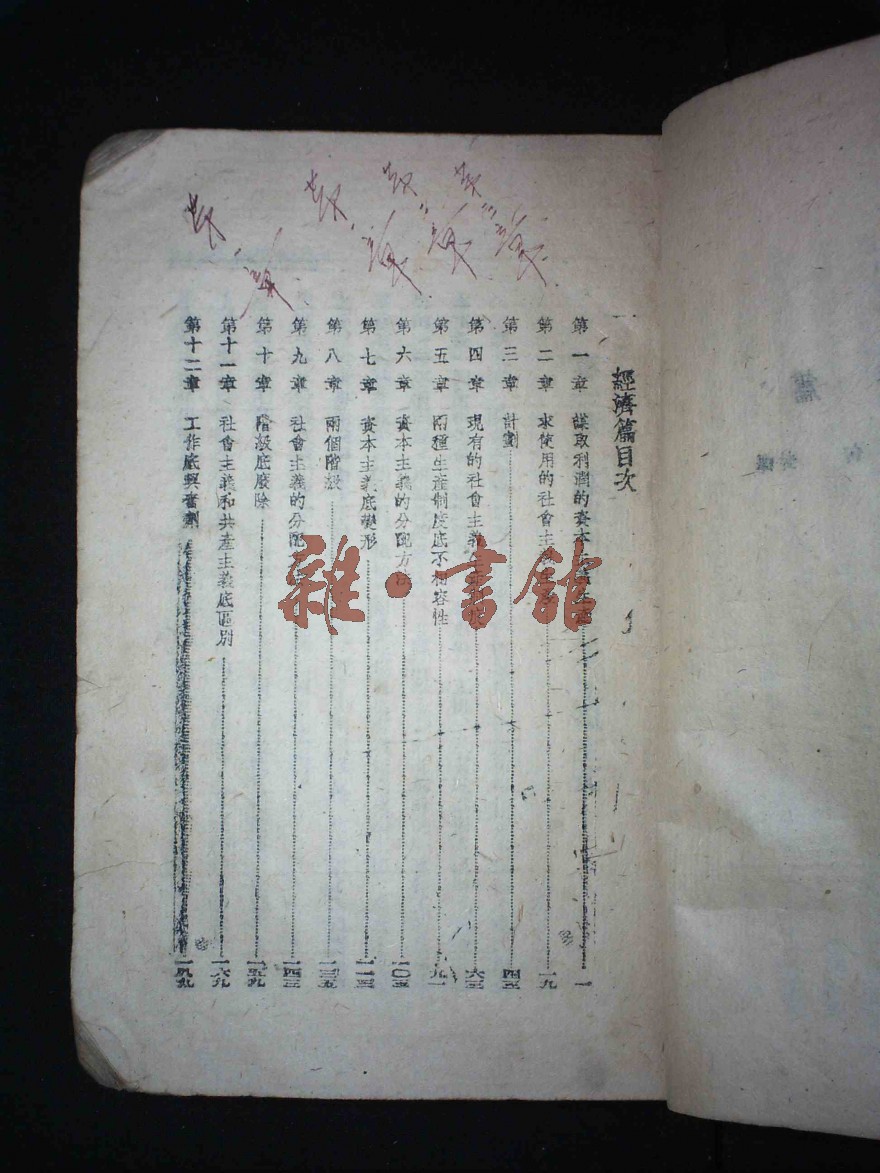 經濟篇目次
第一章 謀取利潤的資本 一
第二章 求使用的社會主 一九
第三章 計劃 四五
第四章 現有的社會主義 六三
第五章 兩種生產制度底不相容性 九一
第六章 資本主義的分配方 一〇五
第七章 資本主義底變形 一一三
第八章 兩個階級 一三五
第九章 社會主義的分配 一四三
第十章 階級底廢除 一五九
第十一章 社會主義和共產主義底區別 一六九
第十二章 工作底興奮劑 一八九
雜·書館